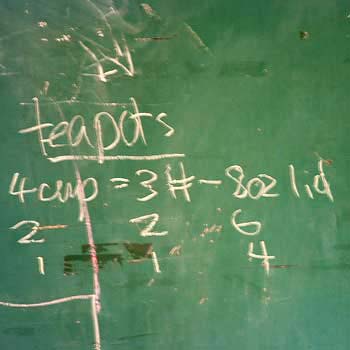 teapots
4 cup = 3# - 8oz lid
2 2 6
1 1 4